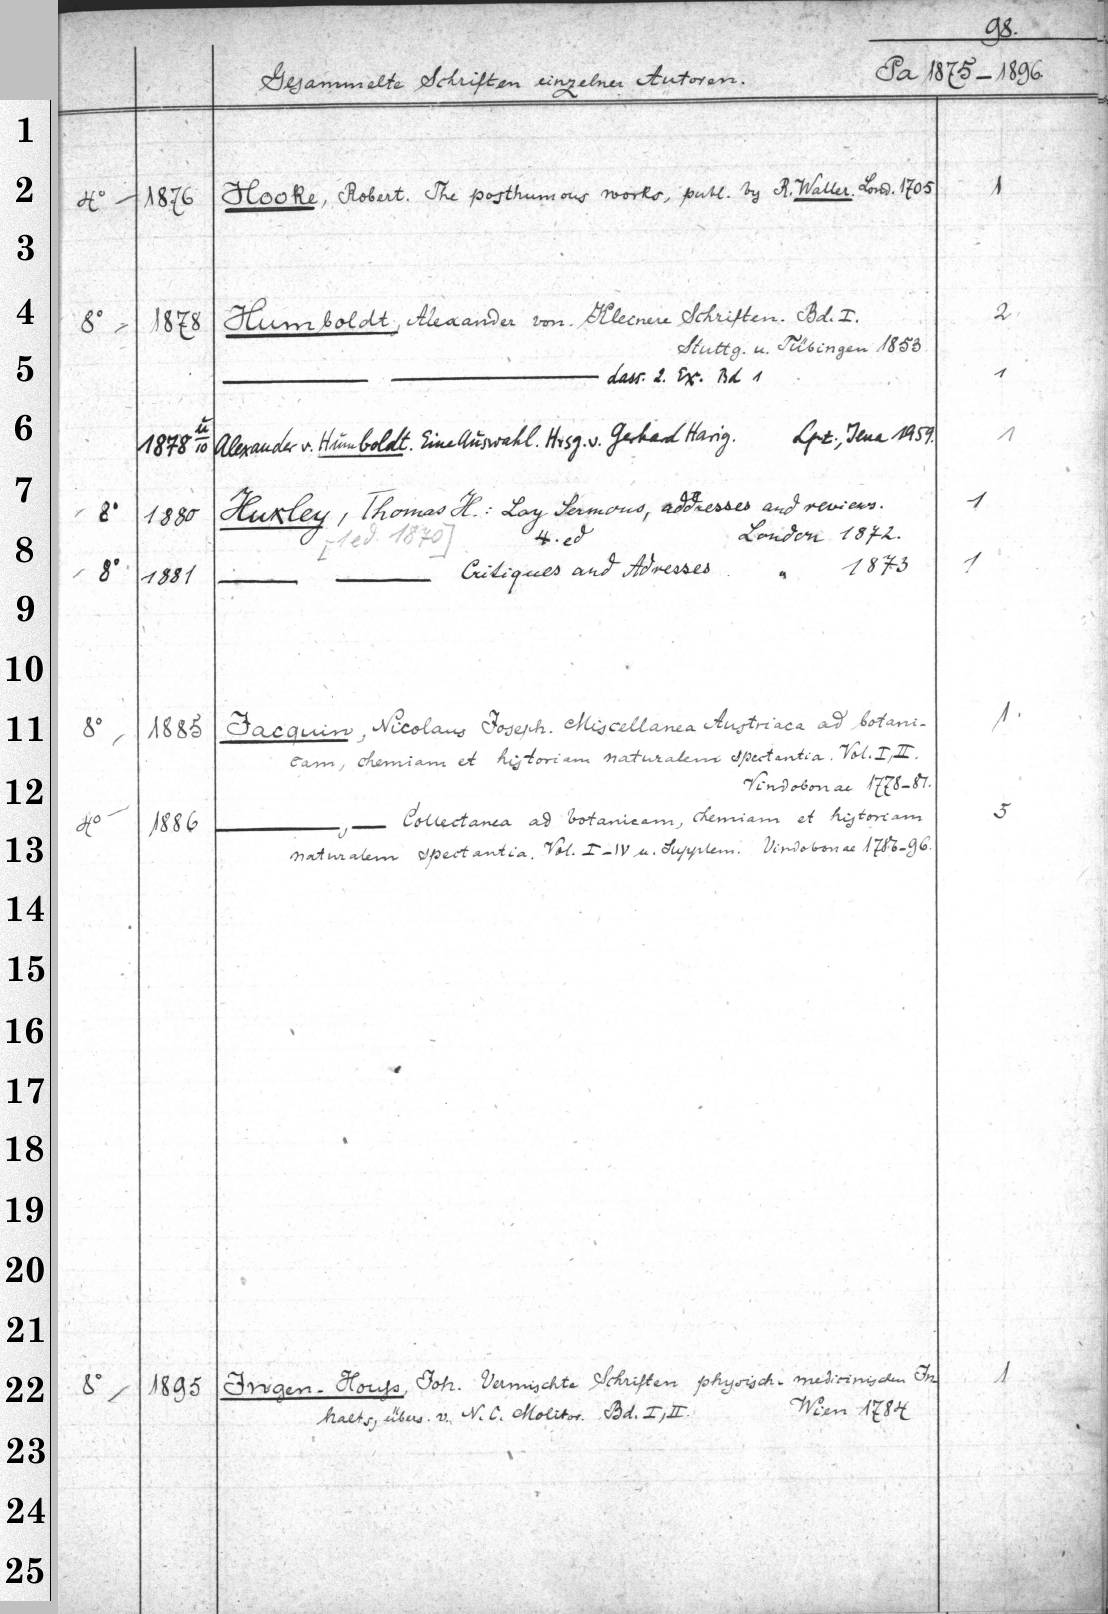 98.
Gesammelte Schriften einzelner Autoren. Pa 1875–1896
1
2 4° – 1876 Hooke, Robert. The posthumous works, publ. by R. Waller. Lond. 1705 1
3
4 8° – 1878 Humboldt, Alexander von. Kleinere Schriften. Bd. I. 2
Stuttg. u. Tübingen 1853
5 ——— ——— dass. 2. Ex. Bd 1 1
6 1878 u/10 Alexander v. Humboldt. Eine Auswahl. Hrsg. v. Gerhard Harig. Lpz., Jena 1959. 1
7 8° 1880 Huxley, Thomas H.: Lay Sermons, addresses and reviews. 1
[1 ed. 1870] 4. ed London 1872.
8 8° 1881 ——— ——— Critiques and Adresses " 1873 1
9
10
11 8° 1885 Jacquin, Nicolaus Joseph. Miscellanea Austriaca ad botani- 1.
cam, chemiam et historiam naturalem spectantia. Vol. I, II.
12 Vindobonae 1778–81.
4° 1886 ———, — Collectanea ad botanicam, chemiam et historiam 5
13 naturalem spectantia. Vol. I–IV u. Supplem. Vindobonae 1786–96.
14
15
16
17
18
19
20
21
22 8° 1895 Ingen-Houss, Joh. Vermischte Schriften physisch-medicinischen In 1
halts, übers. v. N. C. Molitor. Bd. I, II. Wien 1784
23
24
25